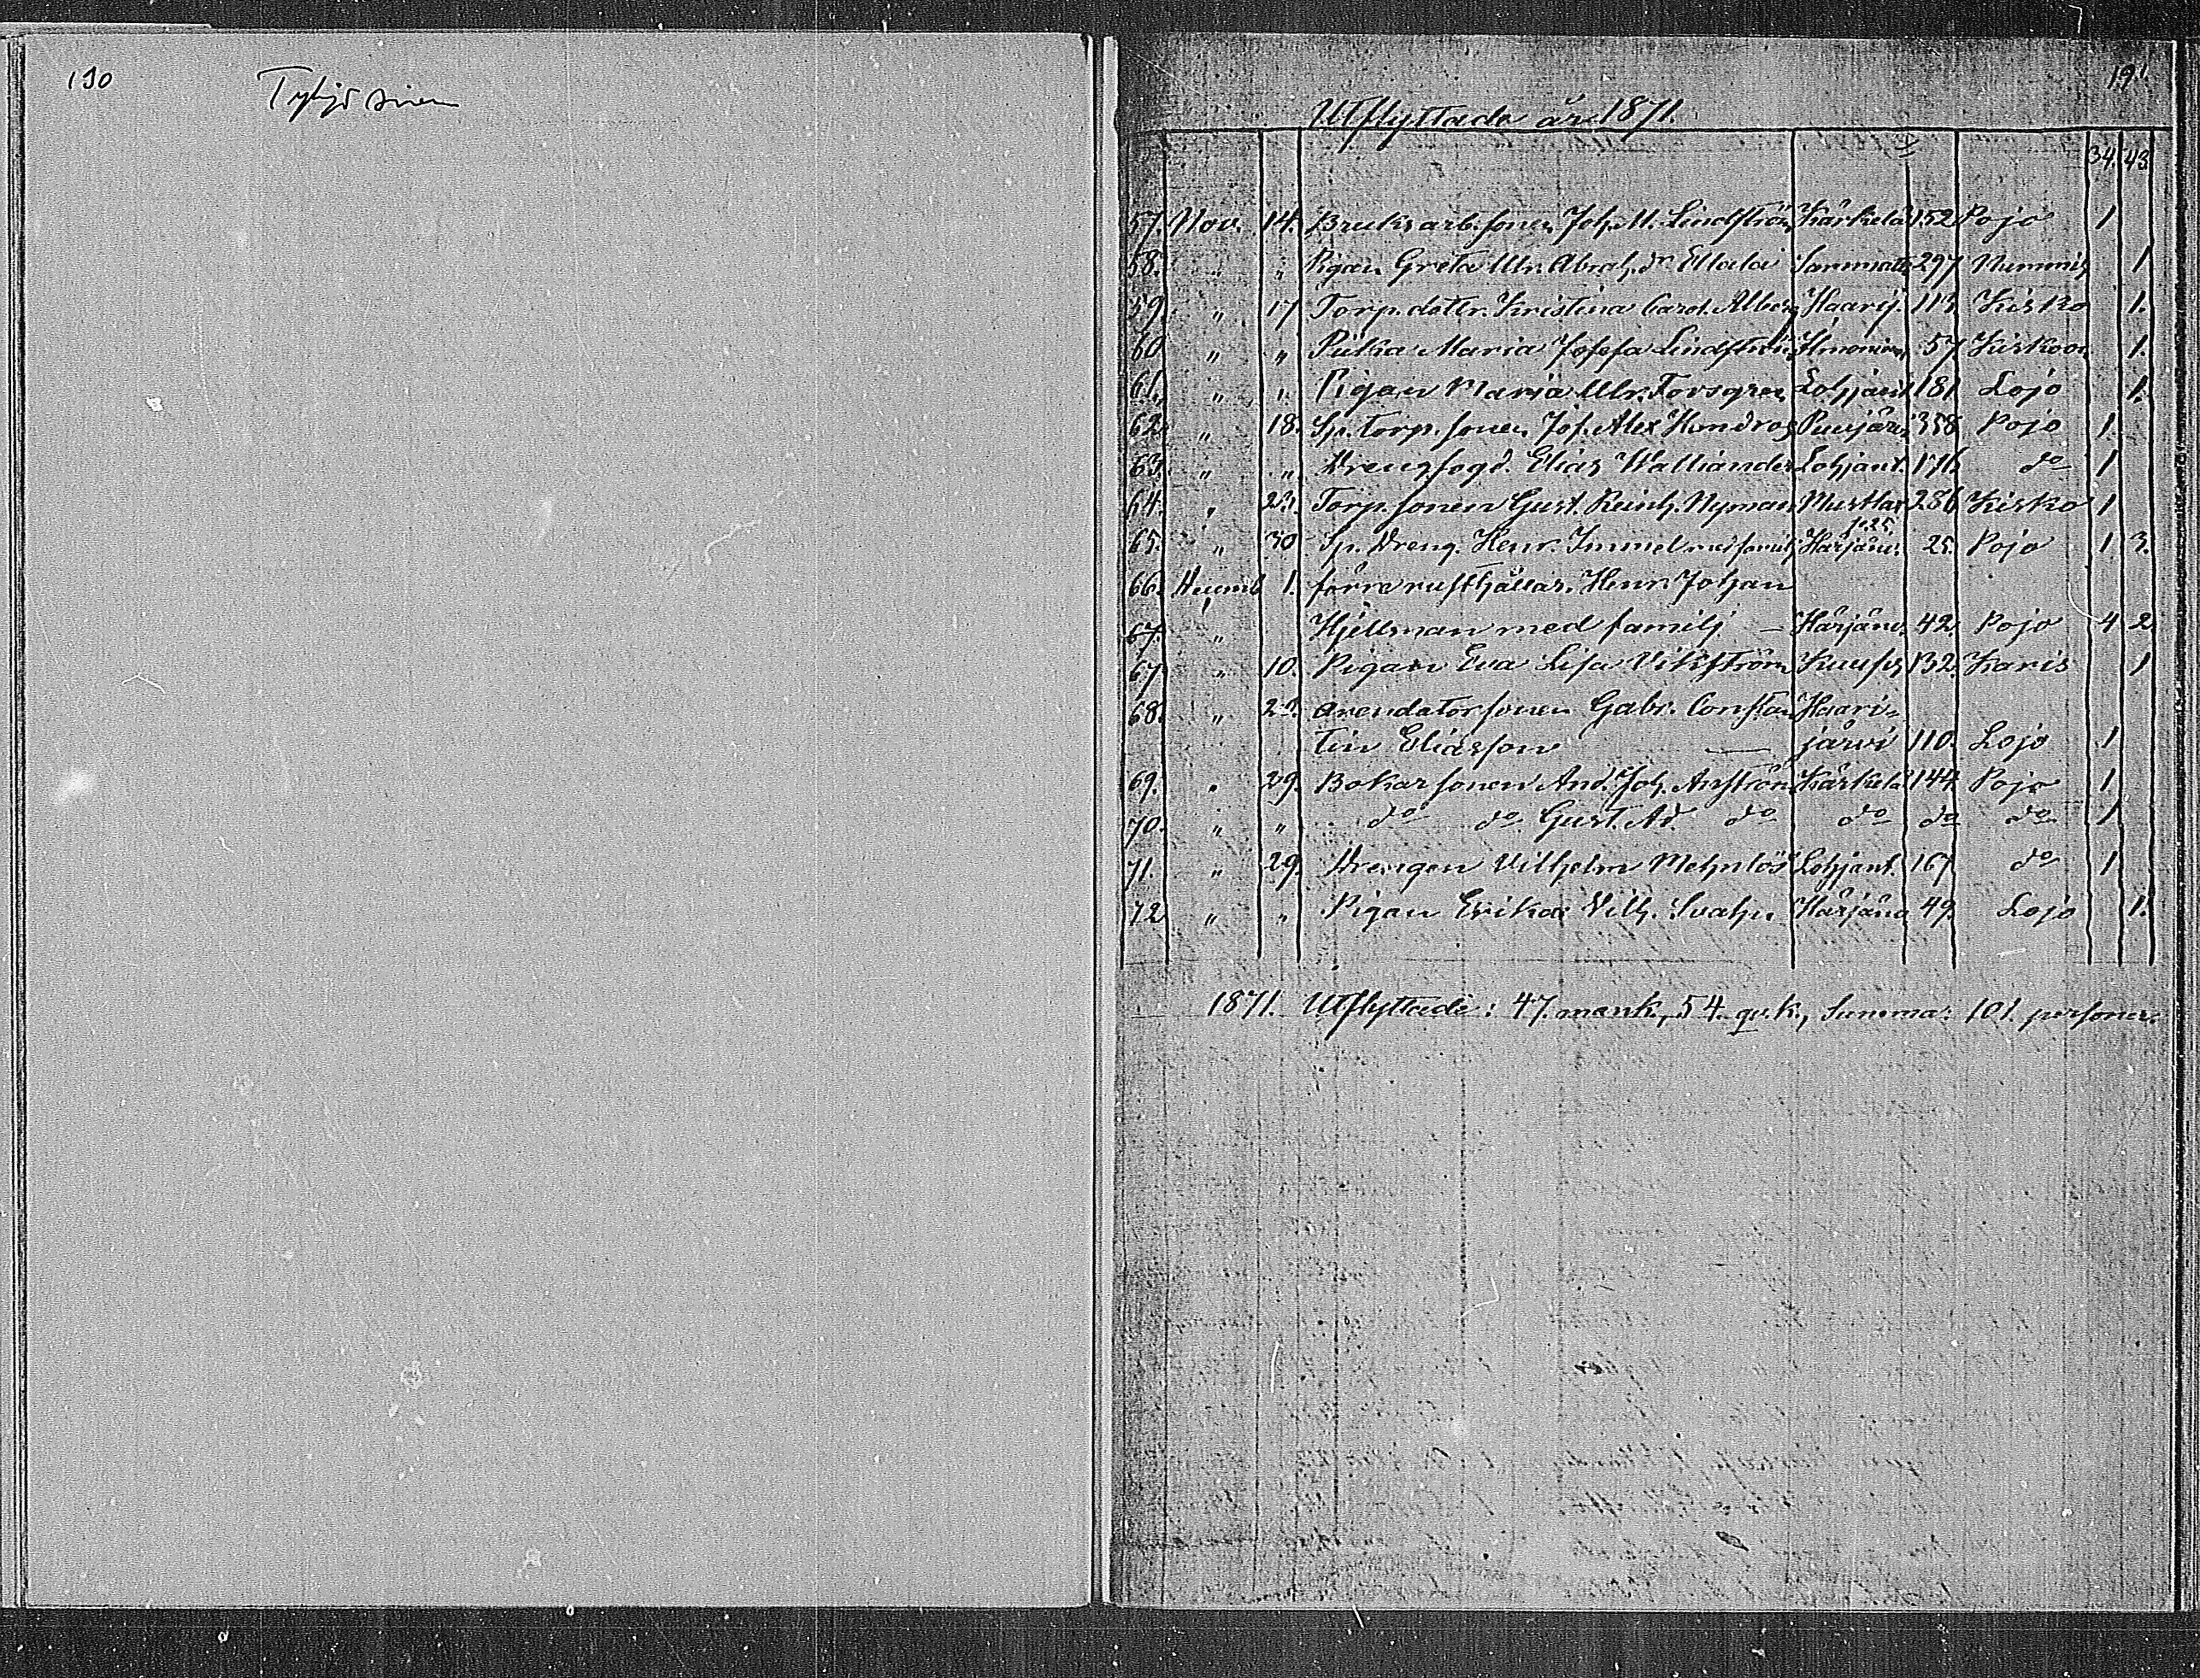 190
Tyhjä sivu
191
Utflyttade år 1871.
34. 43.
57. Nov. 14. Bruksarb. sonen Joh. M. Lindström Kärkelä 152 Pojo 1
58. " " Pigan Greta Ulr. Abrah. dr Ellala Sammatti 297 Nummis 1
59. " 17 Torp. dottr. Kristina Carol. Alberg Haarij. 113 Kisko 1.
60 " " Piika Maria Josefa Lindström 57 Kiskoon 1.
61. " " Pigan Maria Ulr. Forsgren Lohjant. 181 Lojo 1.
62. " 18. Sp. torp. sonen Jos. Alex 358 Pojo 1.
63. " " Drengfogd. Elias Walliander Lohjant. 176 do 1
64. " 23. Torp. sonen Gust. Reinh. Nyman Mustlat 286 Kisko 1
65. " 30 Sp. Dreng. Henr. Immel med familj Härjänv. 25. Pojo 1 3.
66. 1. förre rusthållar. Henr. Johan
67. " Hjellman med familj – Härjänv. 42. Pojo 4 2
67. " 10. Pigan Eva Lisa Vikström 132. Karis 1
68. " Arendatorsonen Gabr. Constan Haari-
tin Eliasson — järvi 110. Lojo 1
69. " 29. Bokarsonen And. Joh. Kärkelä 144. Pojo 1
70. " " do do Gust. Ad. do do do do 1
71. " 29. Drengen Vilhelm Lohjant. 167 do 1
72 " " Pigan Erika Vilh. Svahn Härjänv 49. Lojo 1.
1871. Utflyttade: 47. mank., 54. qv.k., Summa: 101. personer.